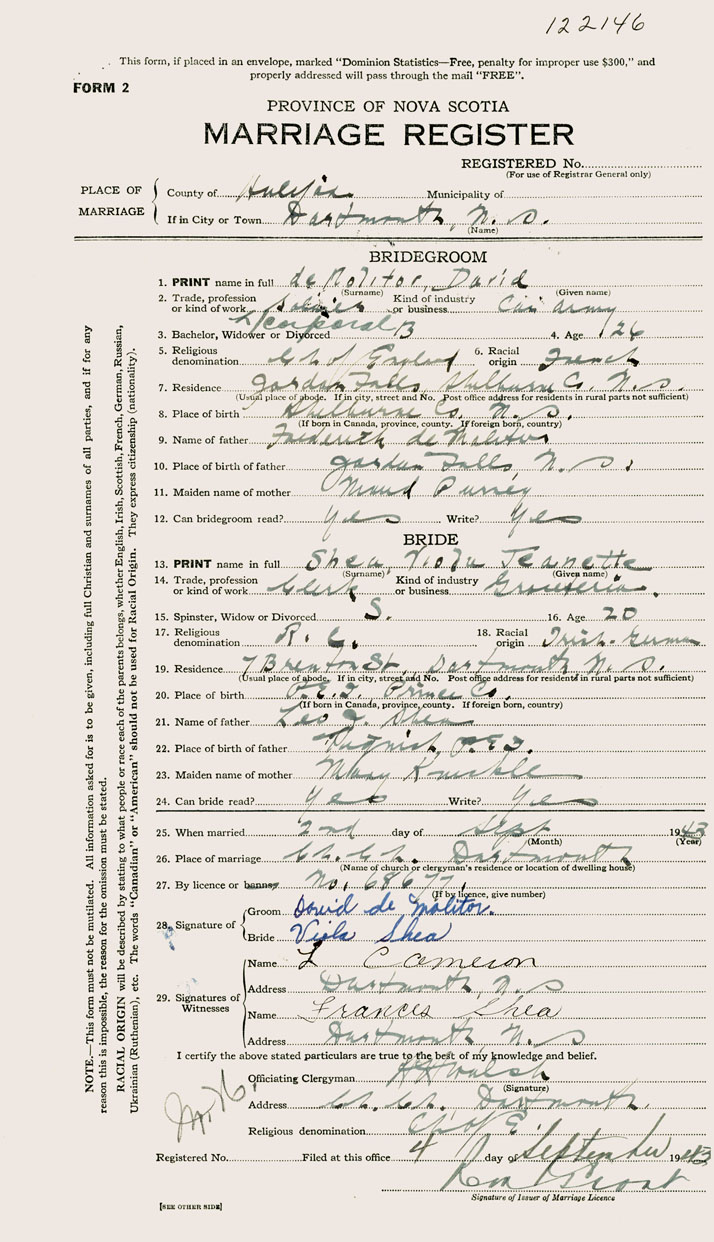 122146
This form, if placed in an envelope, marked "Dominion Statistics—Free, penalty for improper use $300," and
properly addressed will pass through the mail "FREE".
FORM 2
PROVINCE OF NOVA SCOTIA
MARRIAGE REGISTER
REGISTERED No.
(For use of Registrar General only)
PLACE OF MARRIAGE
County of Halifax Municipality of
If in City or Town Dartmouth, N. S.
(Name)
BRIDEGROOM
1. PRINT name in full de Molitor, David
(Surname) (Given name)
2. Trade, profession or kind of work Soldier Kind of industry or business Can army
L/Corporal
3. Bachelor, Widower or Divorced B 4. Age 26
5. Religious denomination Ch of England 6. Racial origin French
7. Residence Jordan Falls, Shelburne Co. N. S.
(Usual place of abode. If in city, street and No. Post office address for residents in rural parts not sufficient)
8. Place of birth Shelburne Co. N. S.
(If born in Canada, province, county. If foreign born, country)
9. Name of father Frederick de Molitor
10. Place of birth of father Jordan Falls, N. S.
11. Maiden name of mother Maud Purney
12. Can bridegroom read? Yes Write? Yes
BRIDE
13. PRINT name in full Shea, Viola Jeanette
(Surname) (Given name)
14. Trade, profession or kind of work Clerk Kind of industry or business Groceteria.
15. Spinster, Widow or Divorced S. 16. Age 20
17. Religious denomination R. C. 18. Racial origin Irish-German
19. Residence 7 Brenton St., Dartmouth N. S.
(Usual place of abode. If in city, street and No. Post office address for residents in rural parts not sufficient)
20. Place of birth P. E. I. Prince Co.
(If born in Canada, province, county. If foreign born, country)
21. Name of father Leo J. Shea
22. Place of birth of father Tignish, P.E.I.
23. Maiden name of mother Mary
24. Can bride read? Yes Write? Yes
25. When married 2nd day of Sept 1943
(Month) (Year)
26. Place of marriage Ch. Ch. Dartmouth
(Name of church or clergyman's residence or location of dwelling house)
27. By licence or banns No. 68677
(If by licence, give number)
28. Signature of
Groom David de Molitor.
Bride Viola Shea
29. Signatures of Witnesses
Name L Cameron
Address Dartmouth, N. S
Name Frances Shea
Address Dartmouth N. S
I certify the above stated particulars are true to the best of my knowledge and belief.
Officiating Clergyman H H Walsh
(Signature)
Address Ch. Ch. Dartmouth.
Religious denomination Ch of E.
Registered No. Filed at this office 4 day of September 1943
Signature of Issuer of Marriage Licence
[SEE OTHER SIDE]
NOTE.—This form must not be mutilated. All information asked for is to be given, including full Christian and surnames of all parties, and if for any
reason this is impossible, the reason for the omission must be stated.
RACIAL ORIGIN will be described by stating to what people or race each of the parents belongs, whether English, Irish, Scottish, French, German, Russian,
Ukrainian (Ruthenian), etc. The words "Canadian" or "American" should not be used for Racial Origin. They express citizenship (nationality).